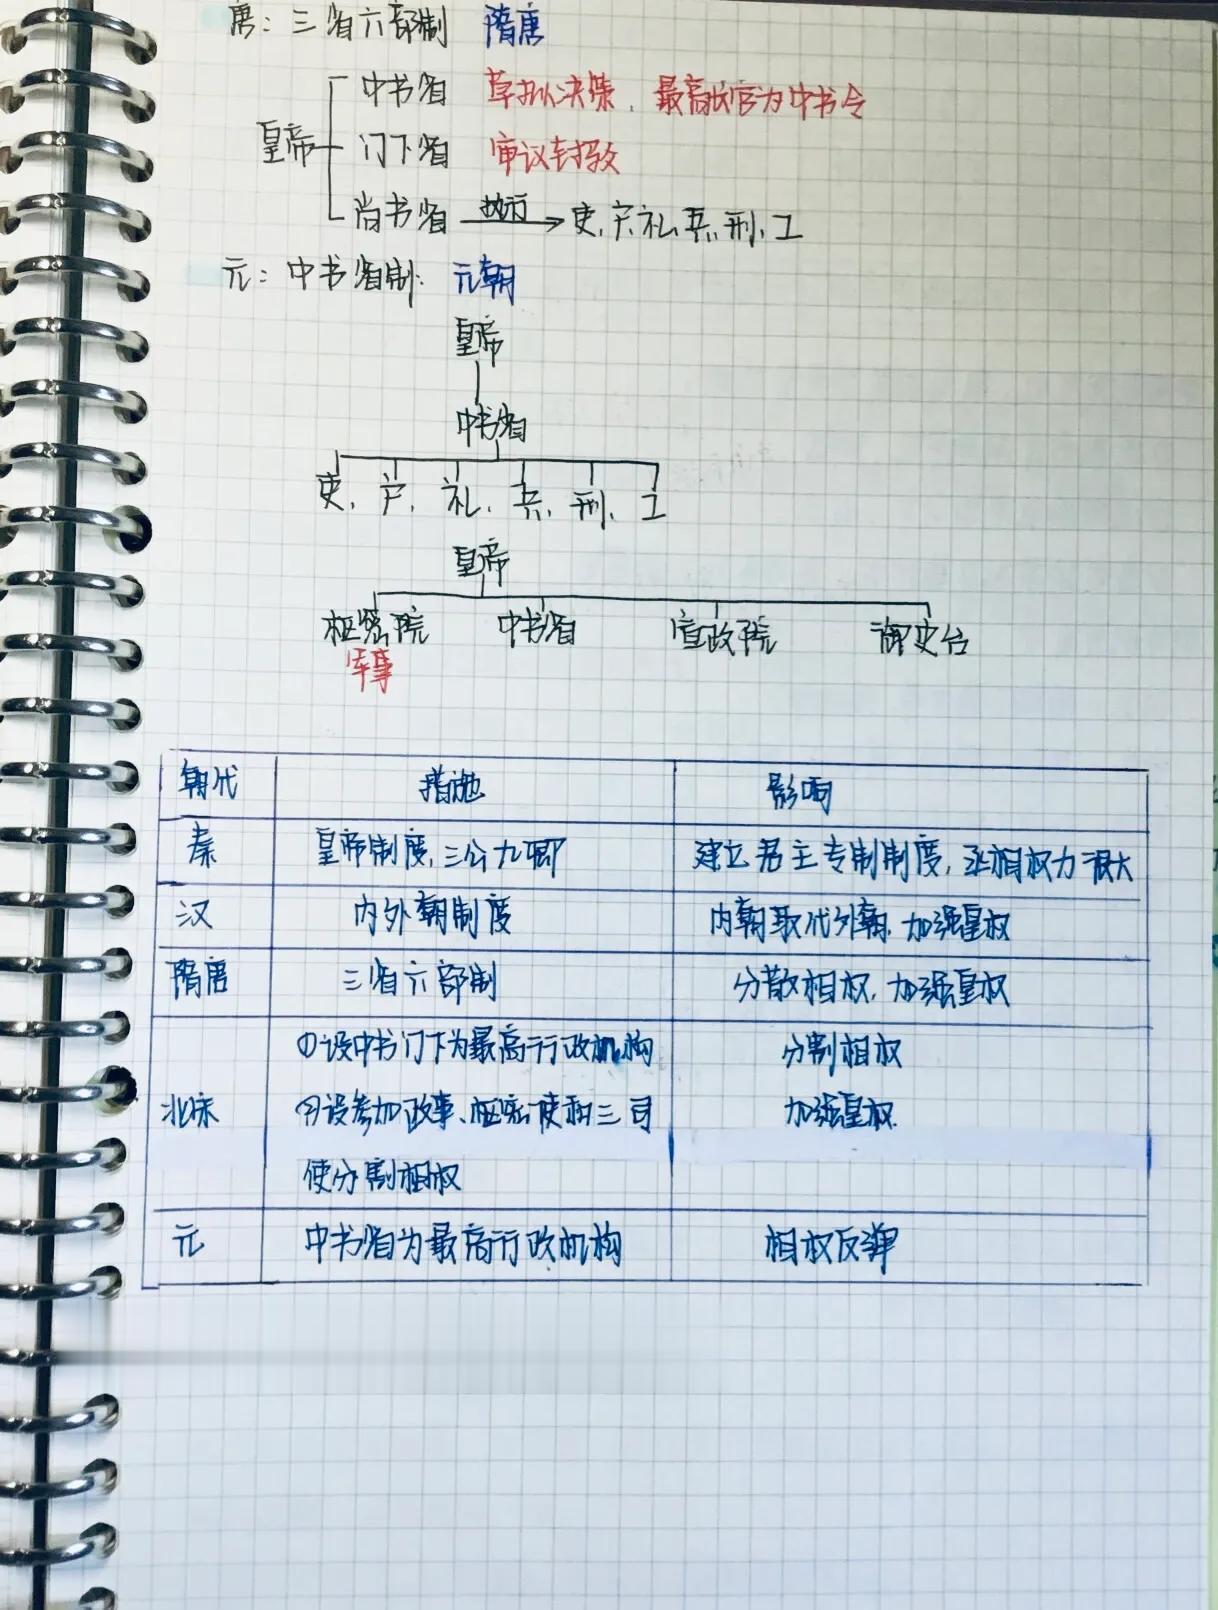 唐：三省六部制 隋唐
中书省 草拟决策，最高长官为中书令
皇帝 门下省 审议封驳
尚书省 执行 吏、户、礼、兵、刑、工
元：中书省制：元朝
皇帝
中书省
吏、户、礼、兵、刑、工
皇帝
枢密院 中书省 宣政院 御史台
军事
朝代 措施 影响
秦 皇帝制度，三公九卿 建立君主专制制度，丞相权力很大
汉 内外朝制度 内朝取代外朝，加强皇权
隋唐 三省六部制 分散相权，加强皇权
①设中书门下为最高行政机构 分割相权
北宋 ②设参加政事、枢密使和三司 加强皇权.
使分割相权
元 中书省为最高行政机构 相权反弹